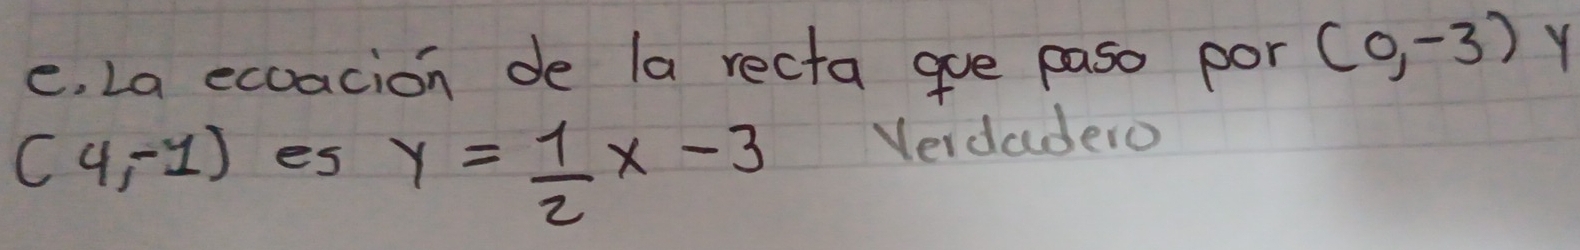 e. La ecuación de la recta que paso por (0,-3) y
(4,-1) es y = 1/2 x - 3 Verdadero